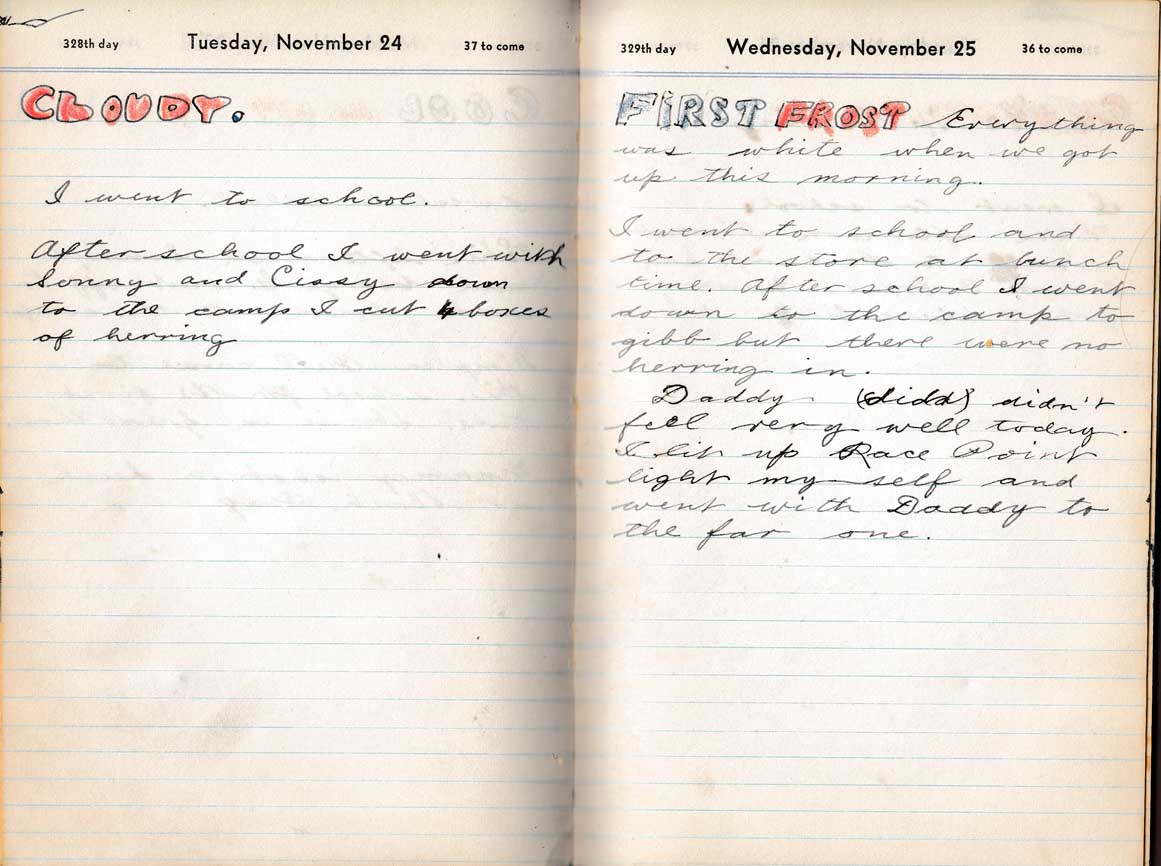 328th day Tuesday, November 24 37 to come
CLOUDY.
I went to school.
After school I went with
Sonny and Cissy down
to the camp I cut 4 boxes
of herring
329th day Wednesday, November 25 36 to come
FIRST FROST Everything
was white when we got
up this morning.
I went to school and
to the store at lunch
time. After school I went
down to the camp to
gibb but there were no
herring in.
Daddy (didn) didn't
feel very well today.
I lit up Race Point
light my self and
went with Daddy to
the far one.